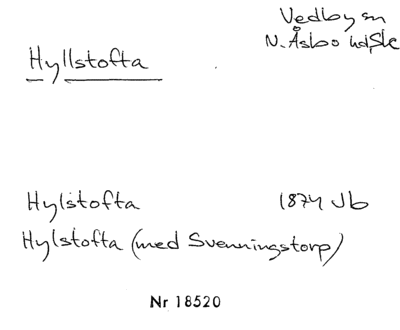 Vedby sn
N. Åsbo hd, Sk
Hyllstofta
Hylstofta 1874 Jb
Hylstofta (med Svenningstorp)
Nr 18520